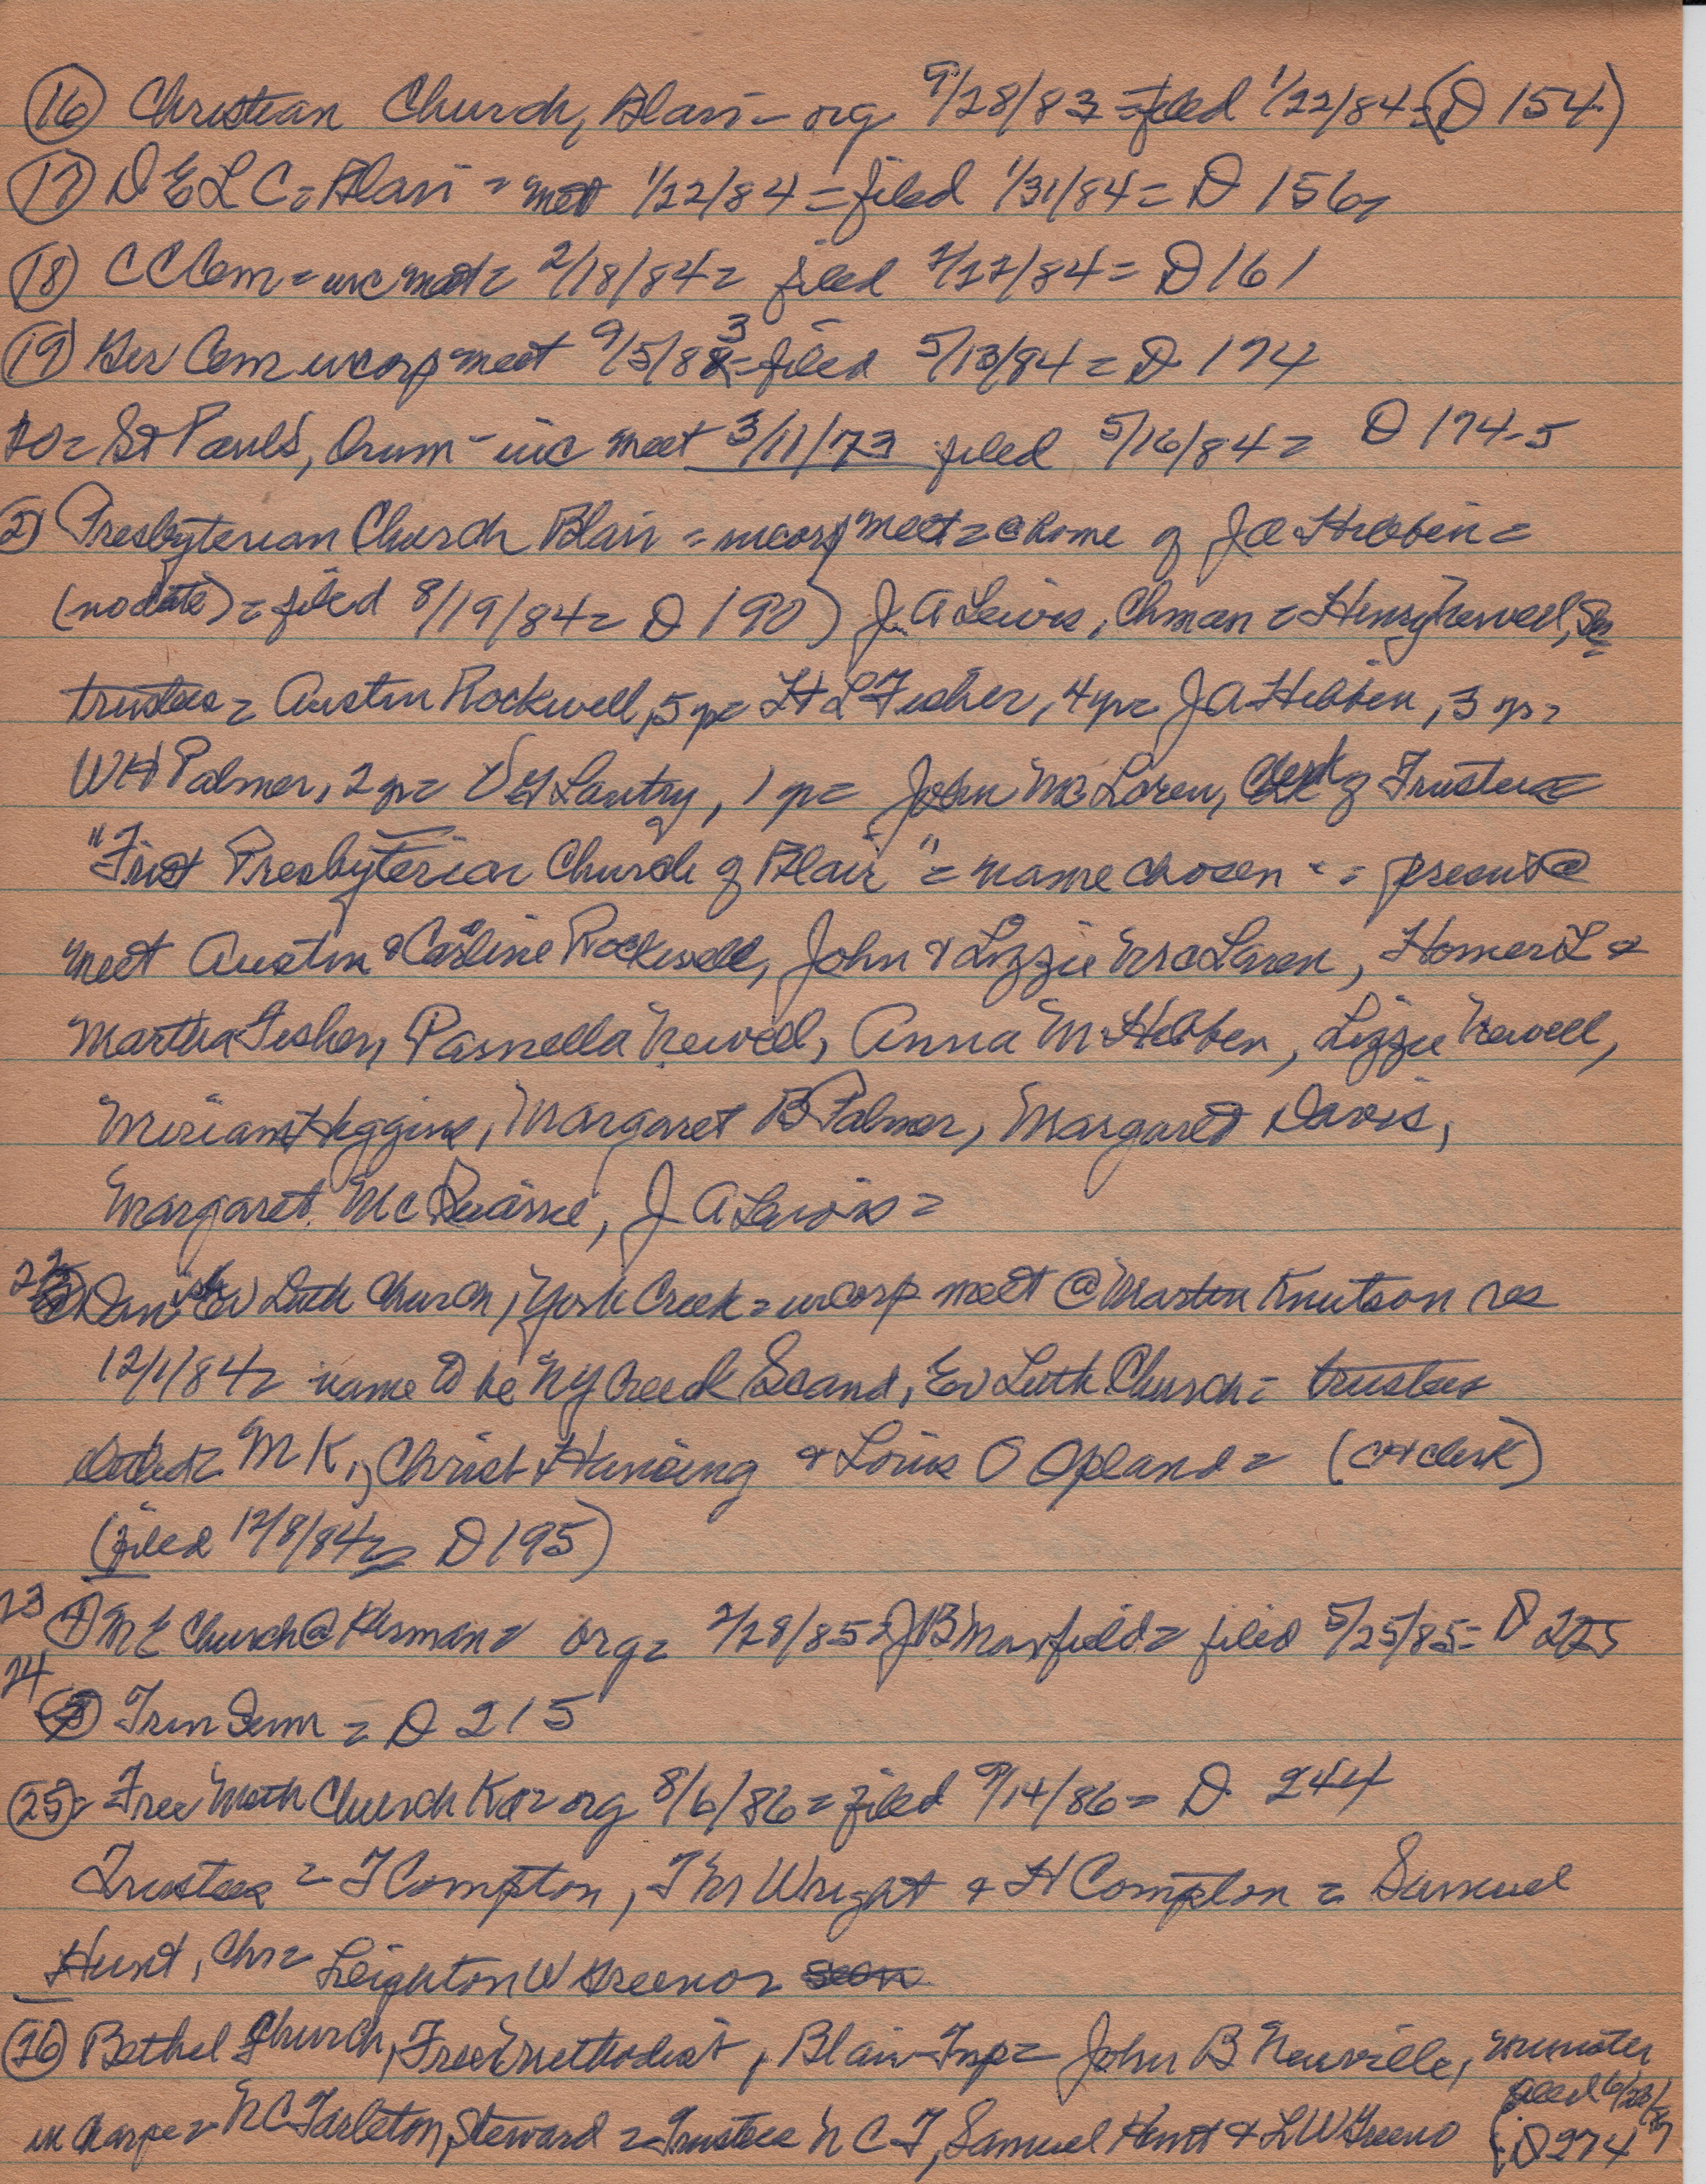 (16) Christian Church, Blair - org 9/28/83 = filed 1/22/84 = (D 154)
(17) D E L C = Blair = met 1/22/84 = filed 1/31/84 = D 156
(18) C C Cem = inc meet = 2/18/84 = filed 7/17/84 = D 161
(19) Ger Cem incorp meet 9/5/83 = filed 5/13/84 = D 174
20 = St Paul's, Orum - inc meet 3/11/73 filed 5/16/84 = D 174-5
21) Presbyterian Church Blair = incorp meet = @ home of J A Hibben =
(no date) = filed 8/19/84 = D 190) J. A Lewis, Chman = Henry Newell, Sec
trustees = Austin Rockwell, 5 yr = H L Fisher, 4 yr = J A Hibben, 3 yr =
W H Palmer, 2 yr = Lantry, 1 yr = John McLoren, Clerk of Trustees
"First Presbyterian Church of Blair" = name chosen = present @
meet Austin & Carline Rockwell, John & Lizzie McLaren, Homer L &
Martha Fisher, Parnella Newell, Anna M Hibben, Lizzie Newell,
Miriam Higgins, Margaret B Palmer, Margaret Davis,
Margaret Mc J A Lewis =
22 Danish Ev Luth Church, York Creek = incorp meet @ Martin Knutson res
12/1/84 = name to be N Y Creek Scand, Ev Luth Church = trustees
elected = M K, Christ Hansing & Louis O Opland = (CH clerk)
(filed 12/8/84 = D 195)
23 (4) M E Church @ Herman = org = 2/28/85 = J B Maxfield = filed 5/25/85 = D
24 (5) Trin Sem = D 215
(25) = Free Meth Church Ka = org 8/6/86 = filed 9/14/86 = D 244
Trustees = T Compton, T M Wright & H Compton = Samuel
Hunt, Chr = Leighton W Greenor
(26) Bethel Church, Free Methodist, Blair Twp = John B Neuville, minister
in charge = N C Tarleton, Steward = Trustees N C T, Samuel Hunt & L W Greeno (filed 6/28/87 D 274